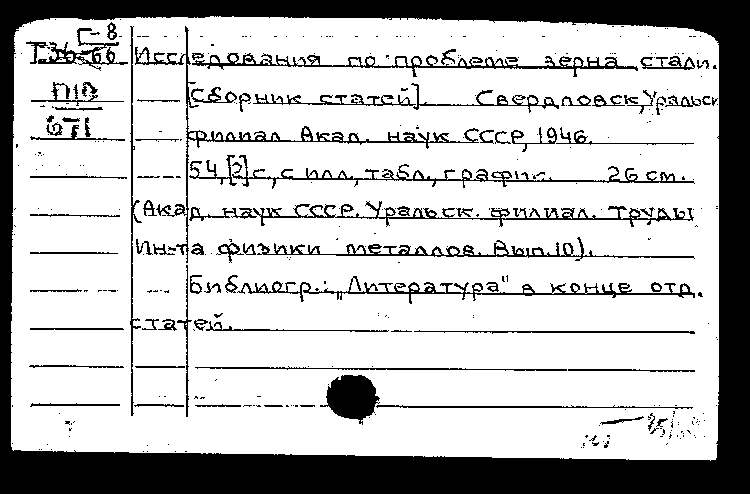 Г-8
Исследования по проблеме зерна стали.
П10 [Сборник статей]. Свердловск, Уральск
671 филиал Акад. наук СССР, 1946.
54,[2] с., с илл., табл., график. 26 см.
(Акад. наук СССР. Уральск. филиал. Труды
Ин-та физики металлов. Вып. 10).
Библиогр.: „Литература" в конце отд.
статей.